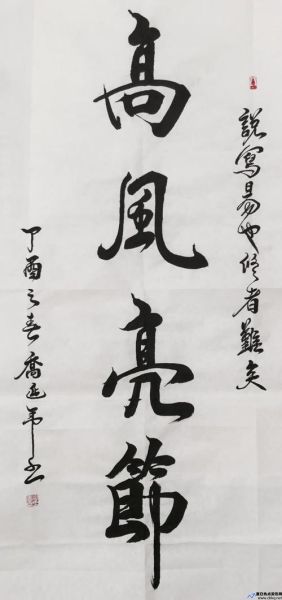 說寫易也修者難矣
高風亮節
丁酉之春喬延军书